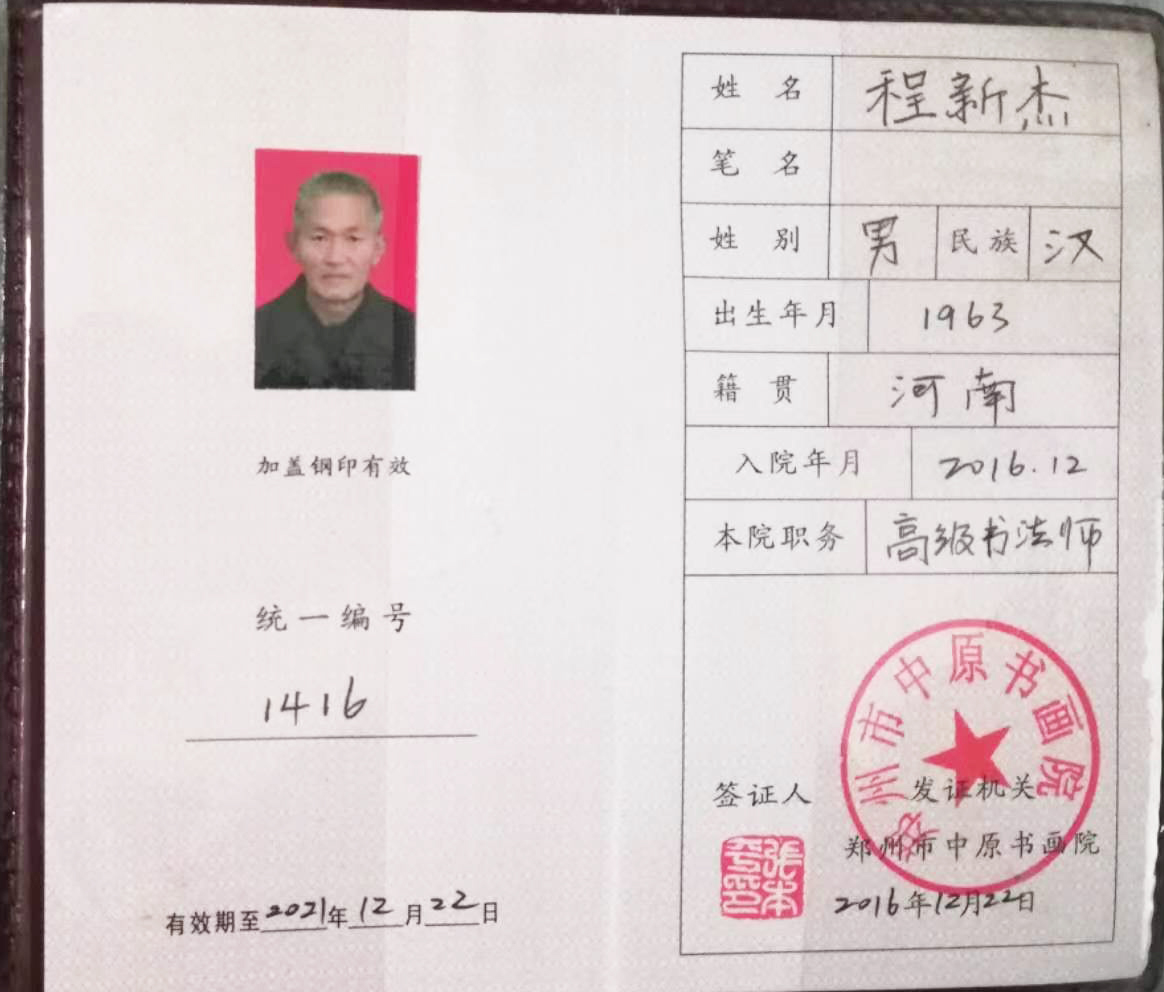 加盖钢印有效
统一编号
1416
有效期至2021年12月22日
姓名 程新杰
笔名
姓别 男 民族 汉
出生年月 1963
籍贯 河南
入院年月 2016.12
本院职务 高级书法师
郑州市中原书画院
签证人 发证机关
郑州市中原书画院
2016年12月22日